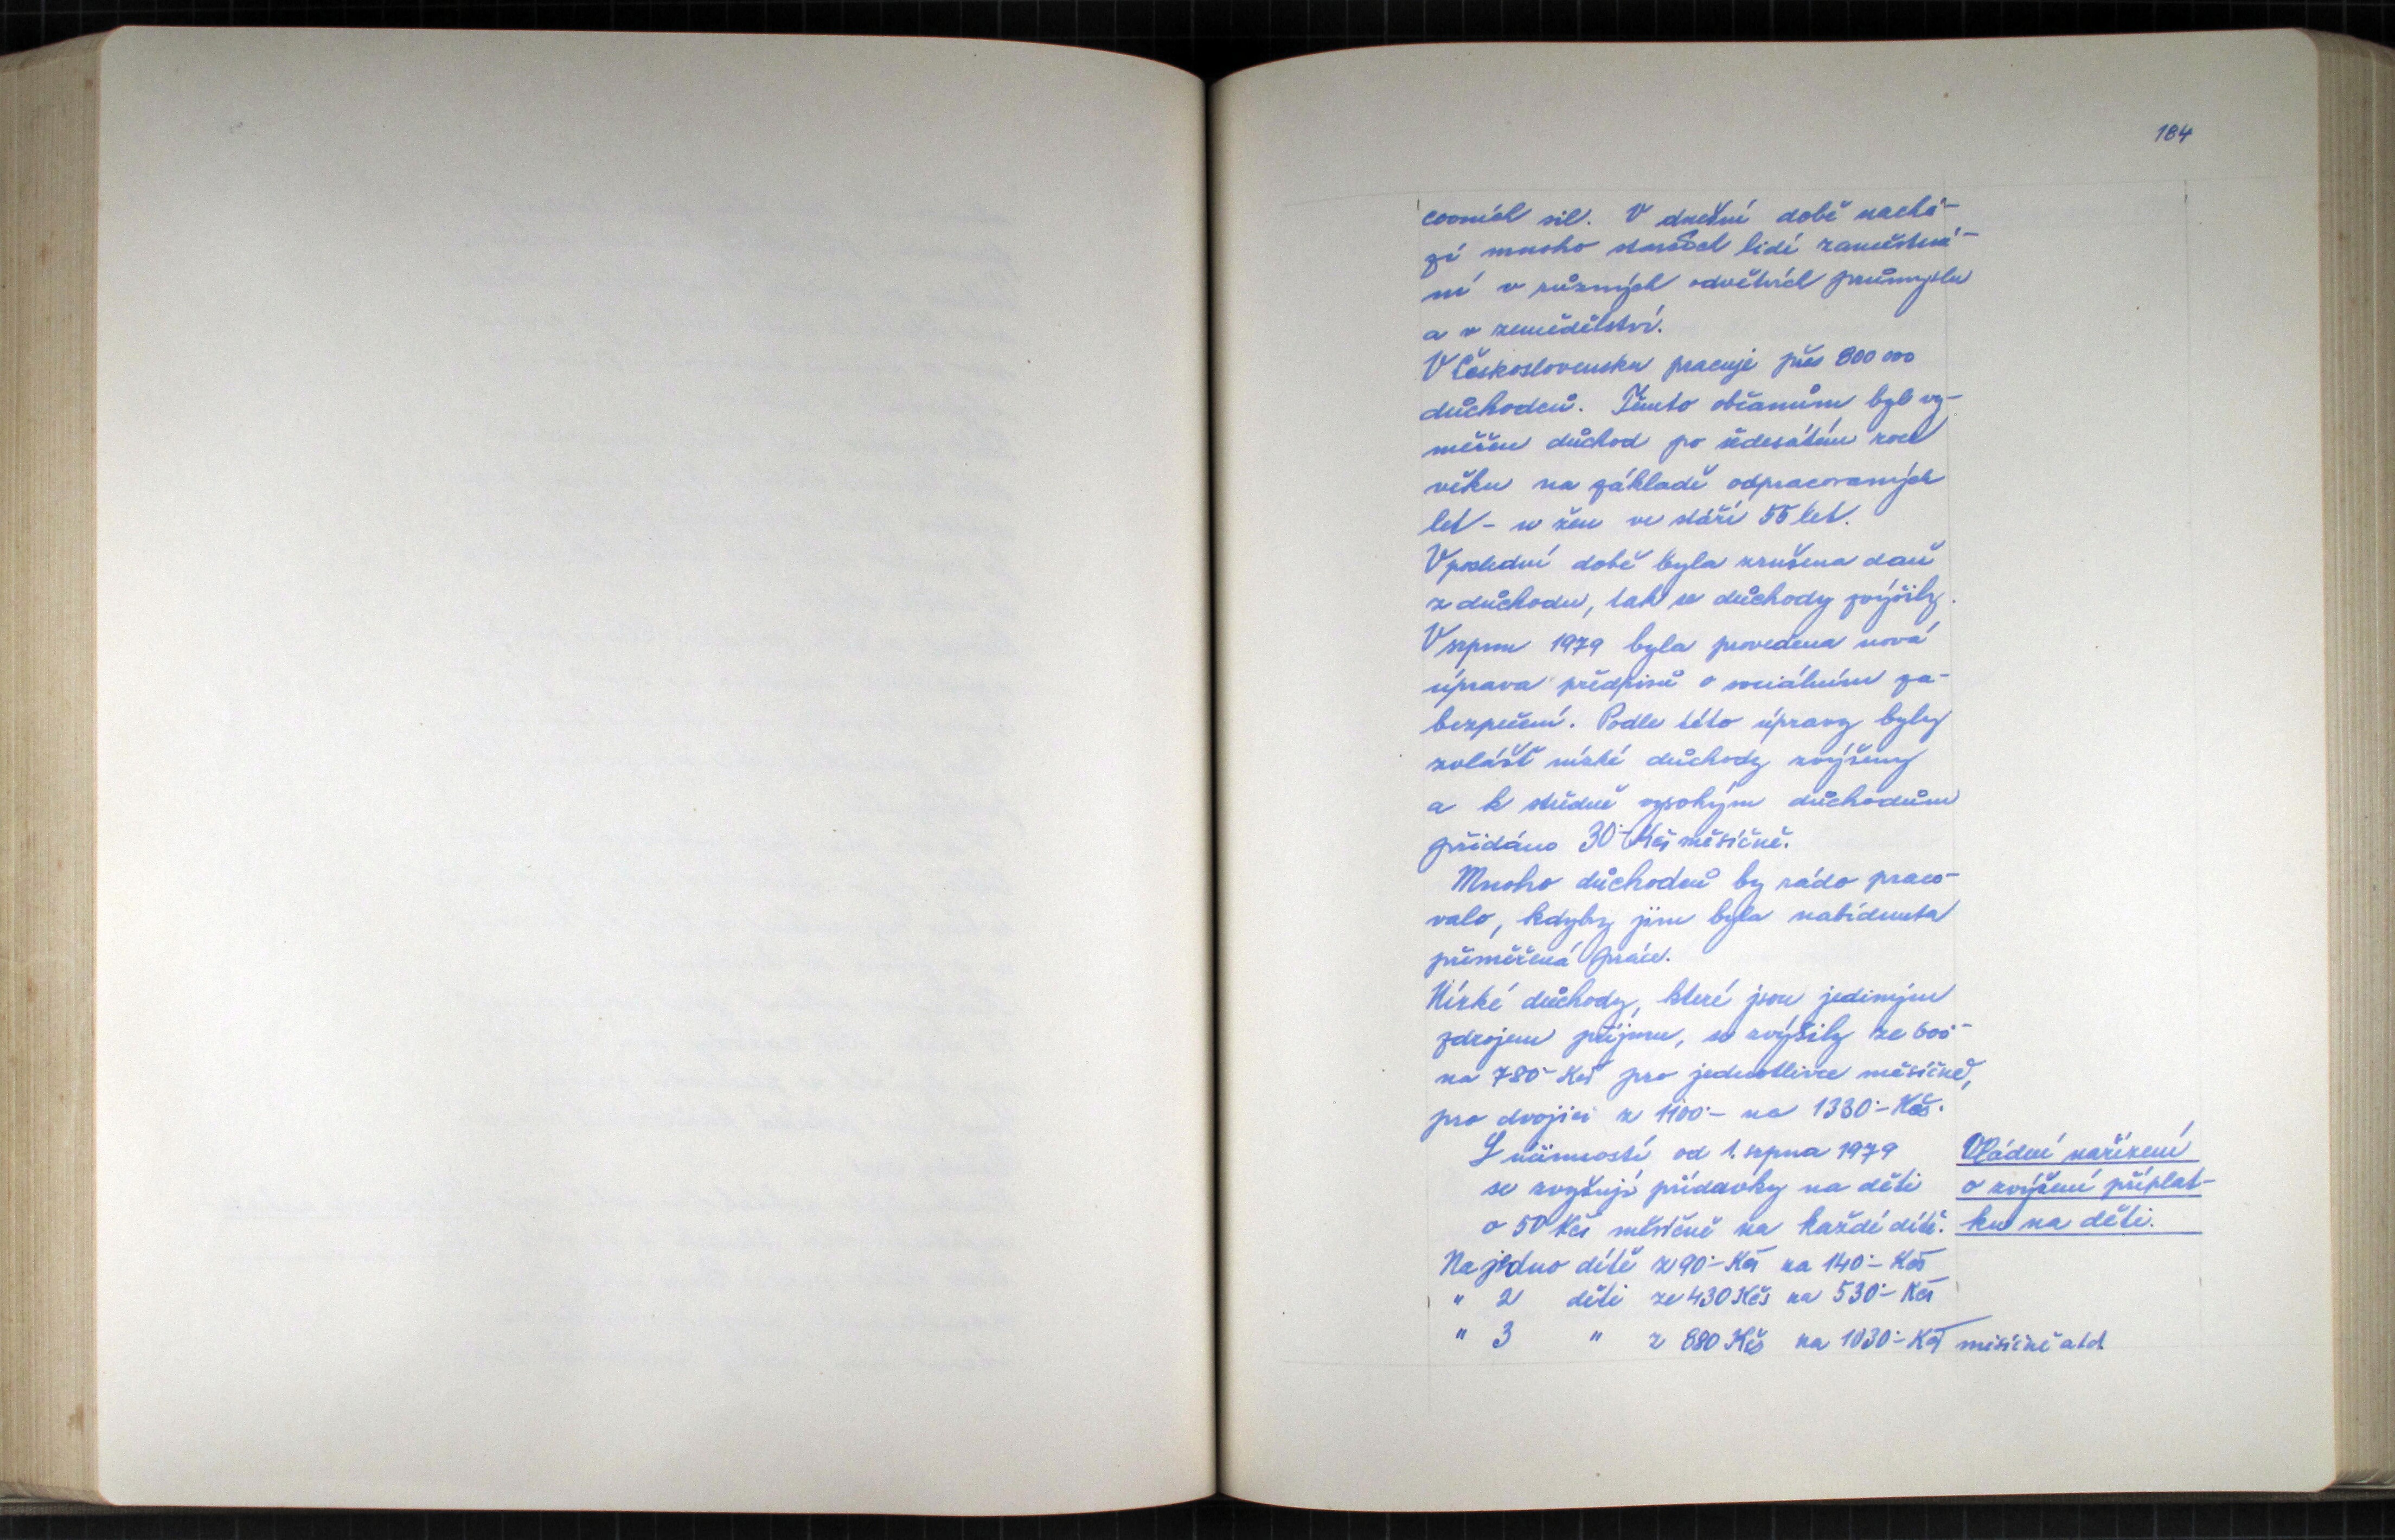 184
covních sil. V dnešní době nachá-
zí mnoho starších lidí zaměstná-
ní v různých odvětvích průmyslu
a v zemědělství.
V Československu pracuje přes 800 000
důchodců. Těmto občanům byl vy-
měřen důchod po šedesátém roce
věku na základě odpracovaných
let - u žen ve stáří 55 let.
V poslední době byla zrušena daň
z důchodu, tak se důchody zvýšily.
V srpnu 1979 byla provedena nová
úprava předpisů o sociálním za-
bezpečení. Podle této úpravy byly
zvlášť nízké důchody zvýšeny
a k středně vysokým důchodům
přidáno 30·- Kčs měsíčně.
Mnoho důchodců by rádo praco-
valo, kdyby jim byla nabídnuta
přiměřená práce.
Nízké důchody, které jsou jediným
zdrojem příjmu, se zvýšily ze 600·-
na 780·- Kčs pro jednotlivce měsíčně,
pro dvojici z 1100·- na 1330·- Kčs.
S účinností od 1. srpna 1979
se zvyšují přídavky na děti
o 50 Kčs měsíčně na každé dítě.
Vládní nařízení
o zvýšení příplat-
ku na děti.
Na jedno dítě z 90·- Kčs na 140·- Kčs
" 2 děti ze 430 Kčs na 530·- Kčs
" 3 " z 880 Kčs na 1030·- Kčs měsíčně atd.